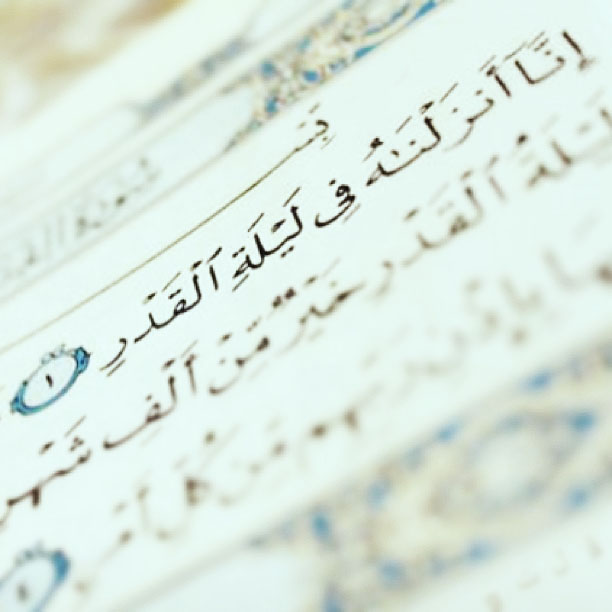 بِسْ
إِنَّآ أَنزَلْنَـٰهُ فِى لَيْلَةِ ٱلْقَدْرِ ١
لَيْلَةُ ٱلْقَدْرِ خَيْرٌ مِّنْ أَلْفِ شَهْرٍ
بِإِذْنِ رَبِّهِم مِّن كُلِّ أَمْرٍ ٤